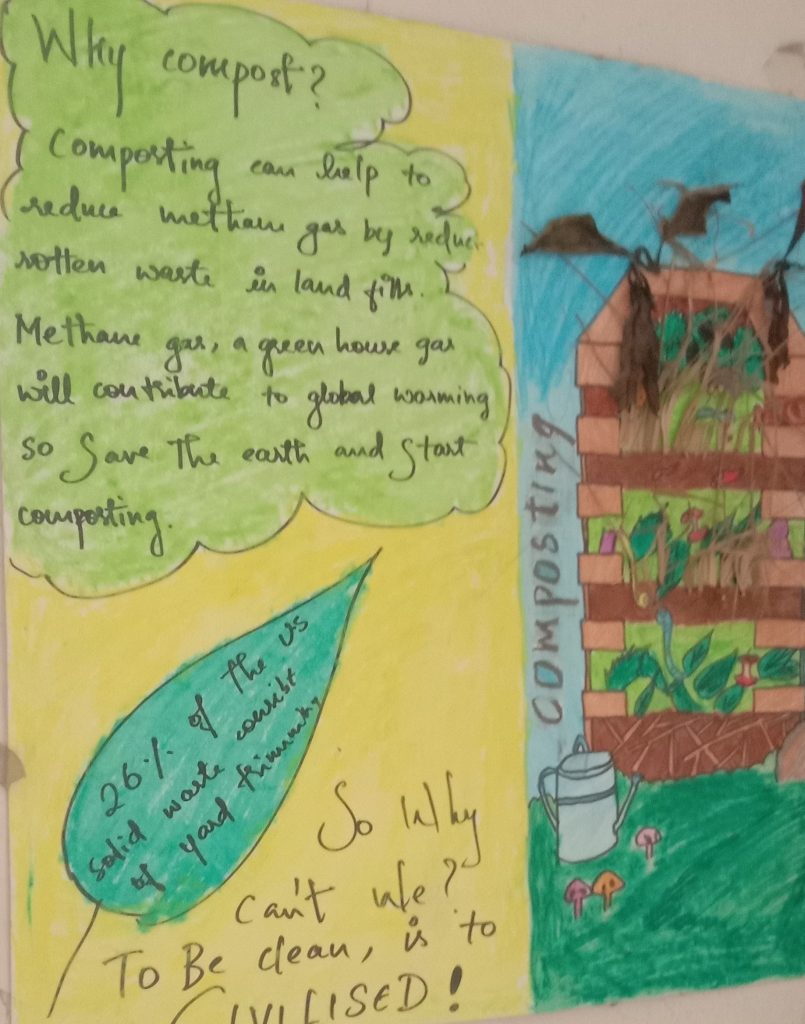 Why compost?
Composting can help to
reduce methane gas by reduci
rotten waste in land fills.
Methane gas, a green house gas
will contribute to global warming
so Save The earth and Start
composting.
26% of the US
solid waste consist
of yard trimming
So Why
can't We?
To Be clean, is to
CIVILISED!
COMPOSTING